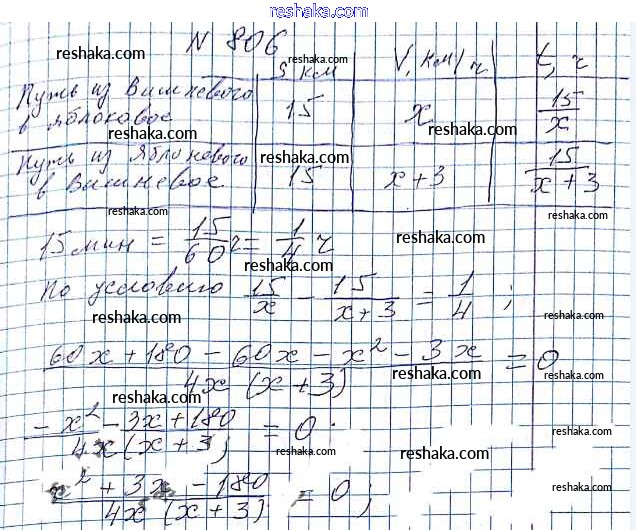 reshaka.com
N 806
reshaka.com reshaka.com reshaka.com
S км V, км/ч t, ч
Путь из Вишневого в Яблоковое 15 x 15/x
reshaka.com reshaka.com reshaka.com
Путь из Яблоневого в Вишневое 15 x+3 15/(x+3)
reshaka.com reshaka.com reshaka.com
reshaka.com reshaka.com
15 мин = 15/60 ч = 1/4 ч
reshaka.com reshaka.com
По условию 15/x - 15/(x+3) = 1/4 ;
reshaka.com reshaka.com
(60x+180 - 60x - x² - 3x)/(4x(x+3)) = 0
reshaka.com reshaka.com reshaka.com
(-x² - 3x + 180)/(4x(x+3)) = 0
reshaka.com reshaka.com
reshaka.com
(x² + 3x - 180)/(4x(x+3)) = 0;
reshaka.com reshaka.com